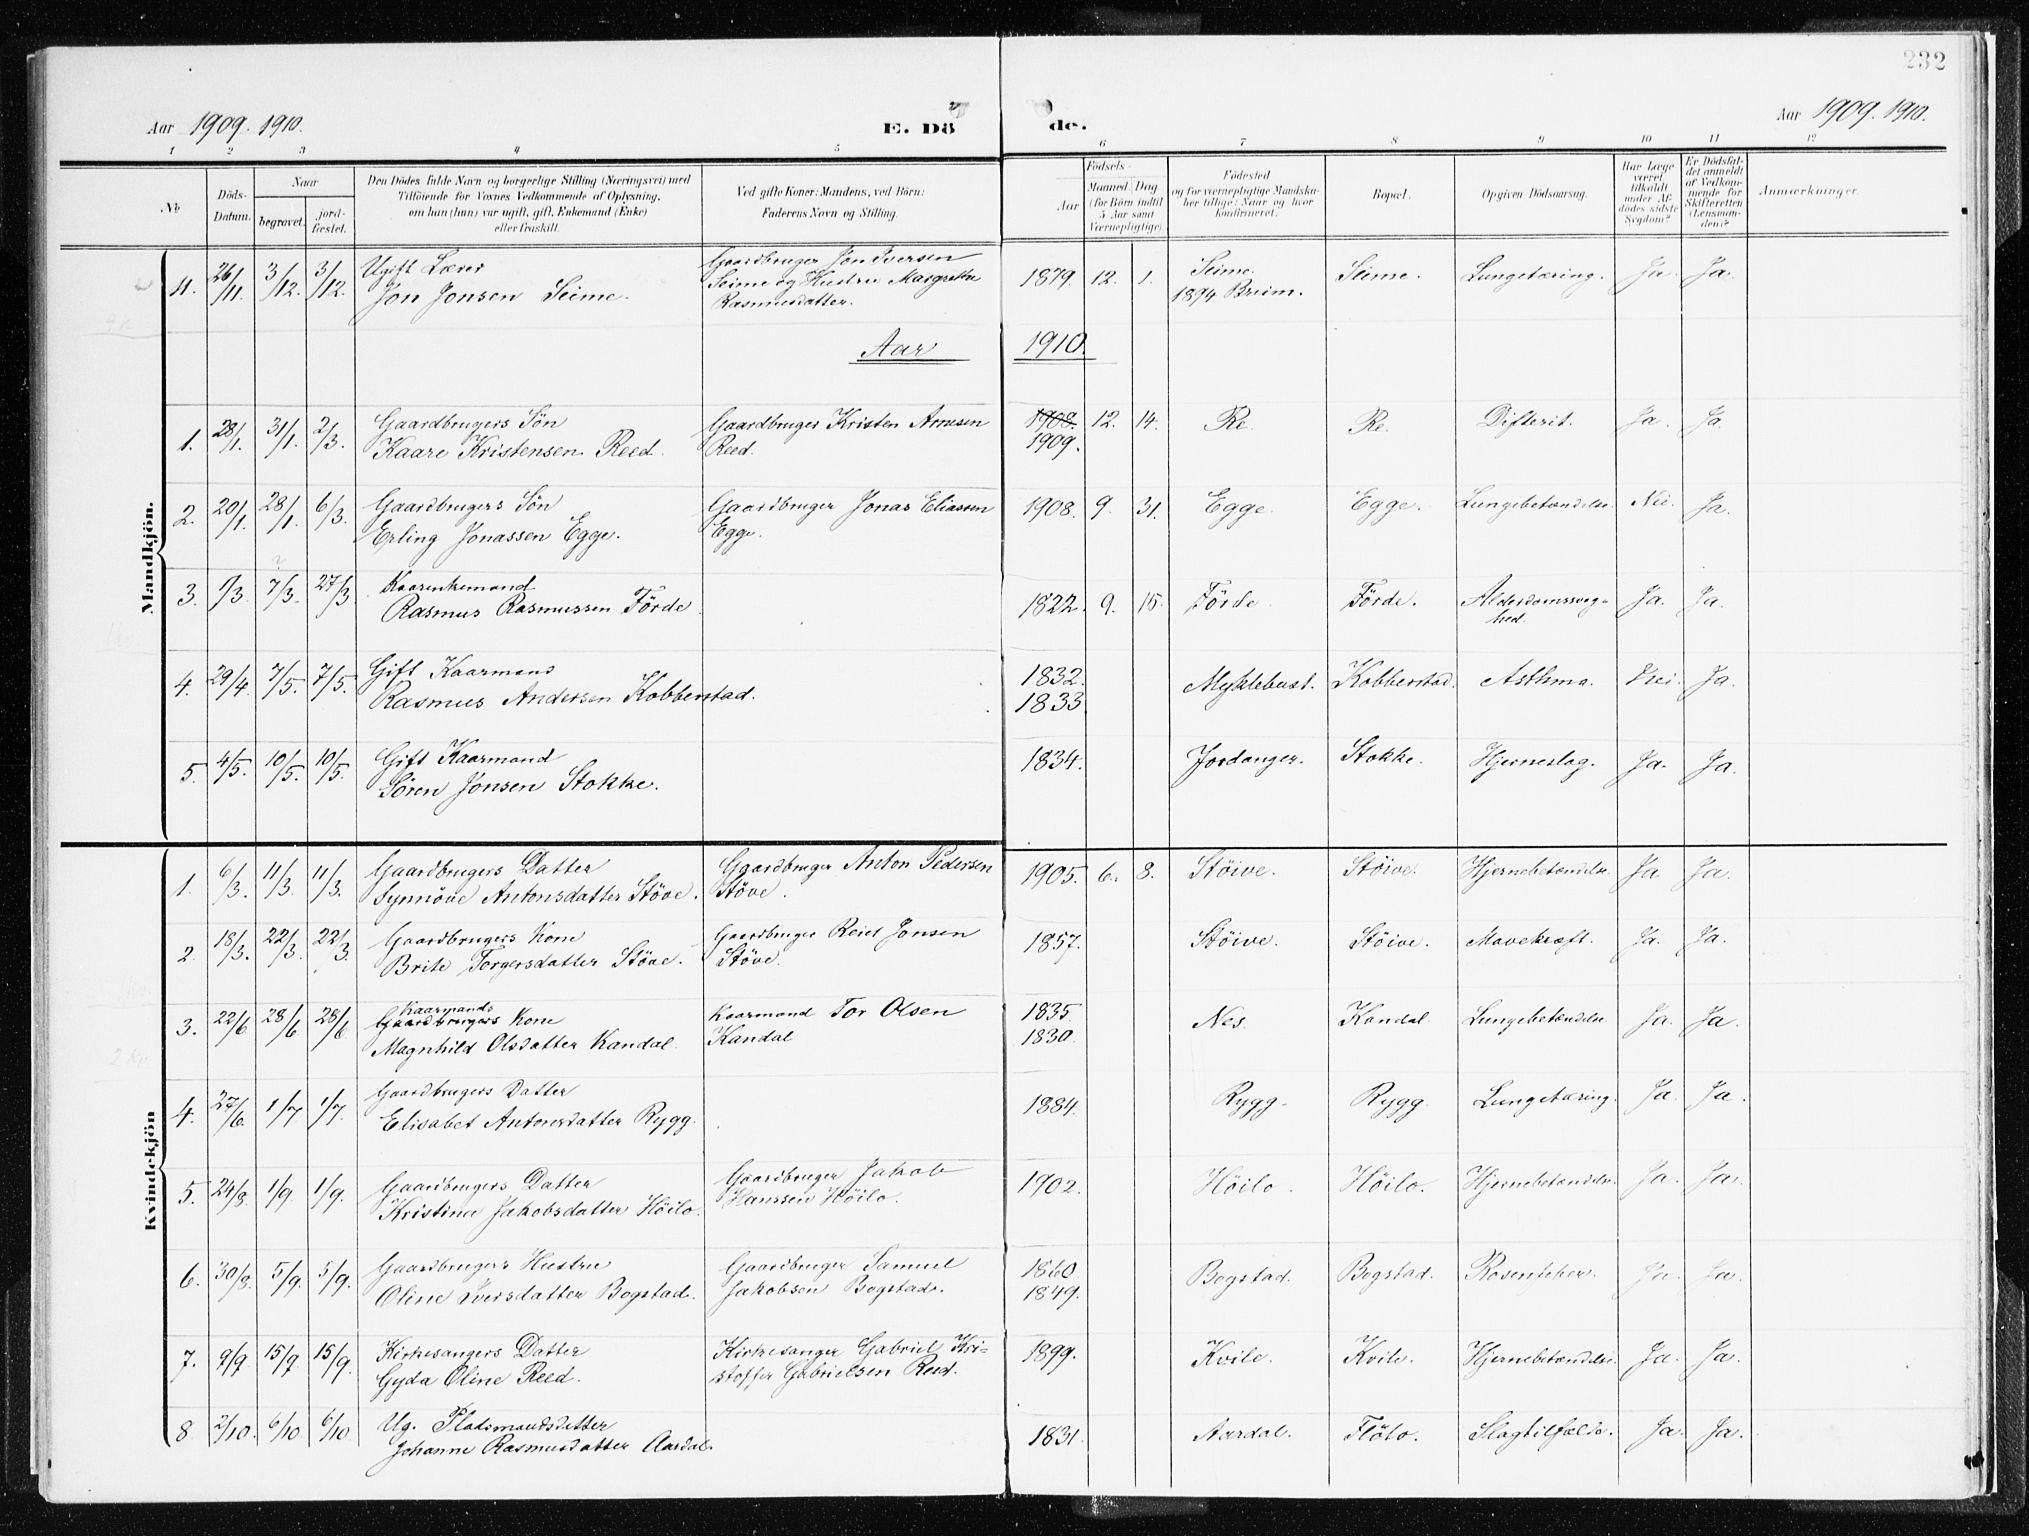 232
Aar 1909. 1910. E. Dö de. Aar 1909. 1910.
1 2 3 4 5 6 7 8 9 10 11 12
No
Döds-
Datum.
Naar
begravet.
jord-
fæstet.
Den Dödes fulde Navn og borgerlige Stilling (Næringsvei) med
Tilföiende for Voxnes Vedkommende af Oplysning,
om han (hun) var ugift, gift, Enkemand (Enke)
eller fraskilt.
Ved gifte Koner: Mandens, ved Börn:
Faderens Navn og Stilling.
Födsels-
Aar
Maaned. Dag
(for Börn indtil
5 Aar samt
Værnepligtige).
Födested
og for værnepligtige Mandska-
ber tillige: Naar og hvor
konfirmeret.
Bopæl.
Opgiven Dödsaarsag.
Har Læge
været
tilkaldt
under Af-
dödes sidste
Sygdom?
Er Dödsfal-
det anmeldt
af Vedkom-
mende for
Skifteretten
(Lensman-
den)?
Anmærkninger.
Mandkjön.
4. 26/11 3/12. 3/12. Ugift Lærer
Jon Jonsen Seime.
Gaardbruger Jon Iversen
Seime og Hustru Margrethe
Rasmusdatter.
1879. 12. 1. Seime.
1894 Breim.
Seime. Lungetæring. Ja. Ja.
Aar 1910.
1. 28/1. 31/1. 2/3. Gaardbrugers Sön
Kaare Kristensen Reed.
Gaardbruger Kristen Arnesen
Reed.
1908.
1909. 12. 14. Re. Re. Difterit. Ja. Ja.
2. 20/1. 28/1. 6/3. Gaardbrugers Sön
Erling Jonassen Egge.
Gaardbruger Jonas Eliassen
Egge.
1908. 9. 31. Egge. Egge. Lungebetændelse. Nei. Ja.
3. 1/3. 7/3. 27/3 Kaarenkemand
Rasmus Rasmussen Förde.
1822. 9. 15. Förde. Förde. Alderdomssvag-
hed. Ja. Ja.
4. 29/4. 7/5. 7/5. Gift Kaarmand
Rasmus Andersen Kobberstad.
1832.
1833. Myklebust. Kobberstad. Asthma. Nei. Ja.
5. 4/5. 10/5. 10/5. Gift Kaarmand
Sören Jonsen Stokke.
1834. Jordanger. Stokke. Hjerneslag. Ja. Ja.
Kvindekjön
1. 6/3. 11/3. 11/3. Gaardbrugers Datter
Synnöve Antonsdatter Stöve.
Gaardbruger Anton Pedersen
Stöve.
1905. 6. 8. Stöive. Stöive. Hjernebetændelse. Ja. Ja.
2. 18/3. 22/3. 22/3. Gaardbrugers Kone
Brite Torgersdatter Stöve.
Gaardbruger Reiel Jonsen
Stöve.
1857. Stöive. Stöive. Mavekræft. Ja. Ja.
3. 22/6 28/6 28/6 Kaarmands
Gaardbrugers Kone
Magnhild Olsdatter Kandal.
Kaarmand Tor Olsen
Kandal
1835.
1830. Nes. Kandal Lungebetændelse Ja. Ja.
4. 27/6. 1/7 1/7. Gaardbrugers Datter
Elisabet Antonsdatter Rygg.
1884. Rygg. Rygg. Lungetæring. Ja. Ja.
5. 24/8. 1/9. 1/9. Gaardbrugers Datter
Kristina Jakobsdatter Höilo.
Gaardbruger Jakob
Hanssen Höilo.
1902. Höilo. Höilo. Hjernebetændelse. Ja. Ja.
6. 30/8. 5/9. 5/9. Gaardbrugers Hustru
Oline Iversdatter Bogstad.
Gaardbruger Samuel
Jakobsen Bogstad.
1860
1849. Bogstad. Bogstad. Rosenfeber. Ja. Ja.
7. 9/9 15/9. 15/9. Kirkesangers Datter
Gyda Oline Reed.
Kirkesanger Gabriel Kri-
stoffer Gabrielsen Reed.
1899. Kvile. Kvile. Hjernebetændelse. Ja. Ja.
8 2/10. 6/10 6/10 Ug. Pladsmandsdatter
Johanne Rasmusdatter Aardal.
1831. Aardal. Flölo. Slagtilfælde. Ja. Ja.